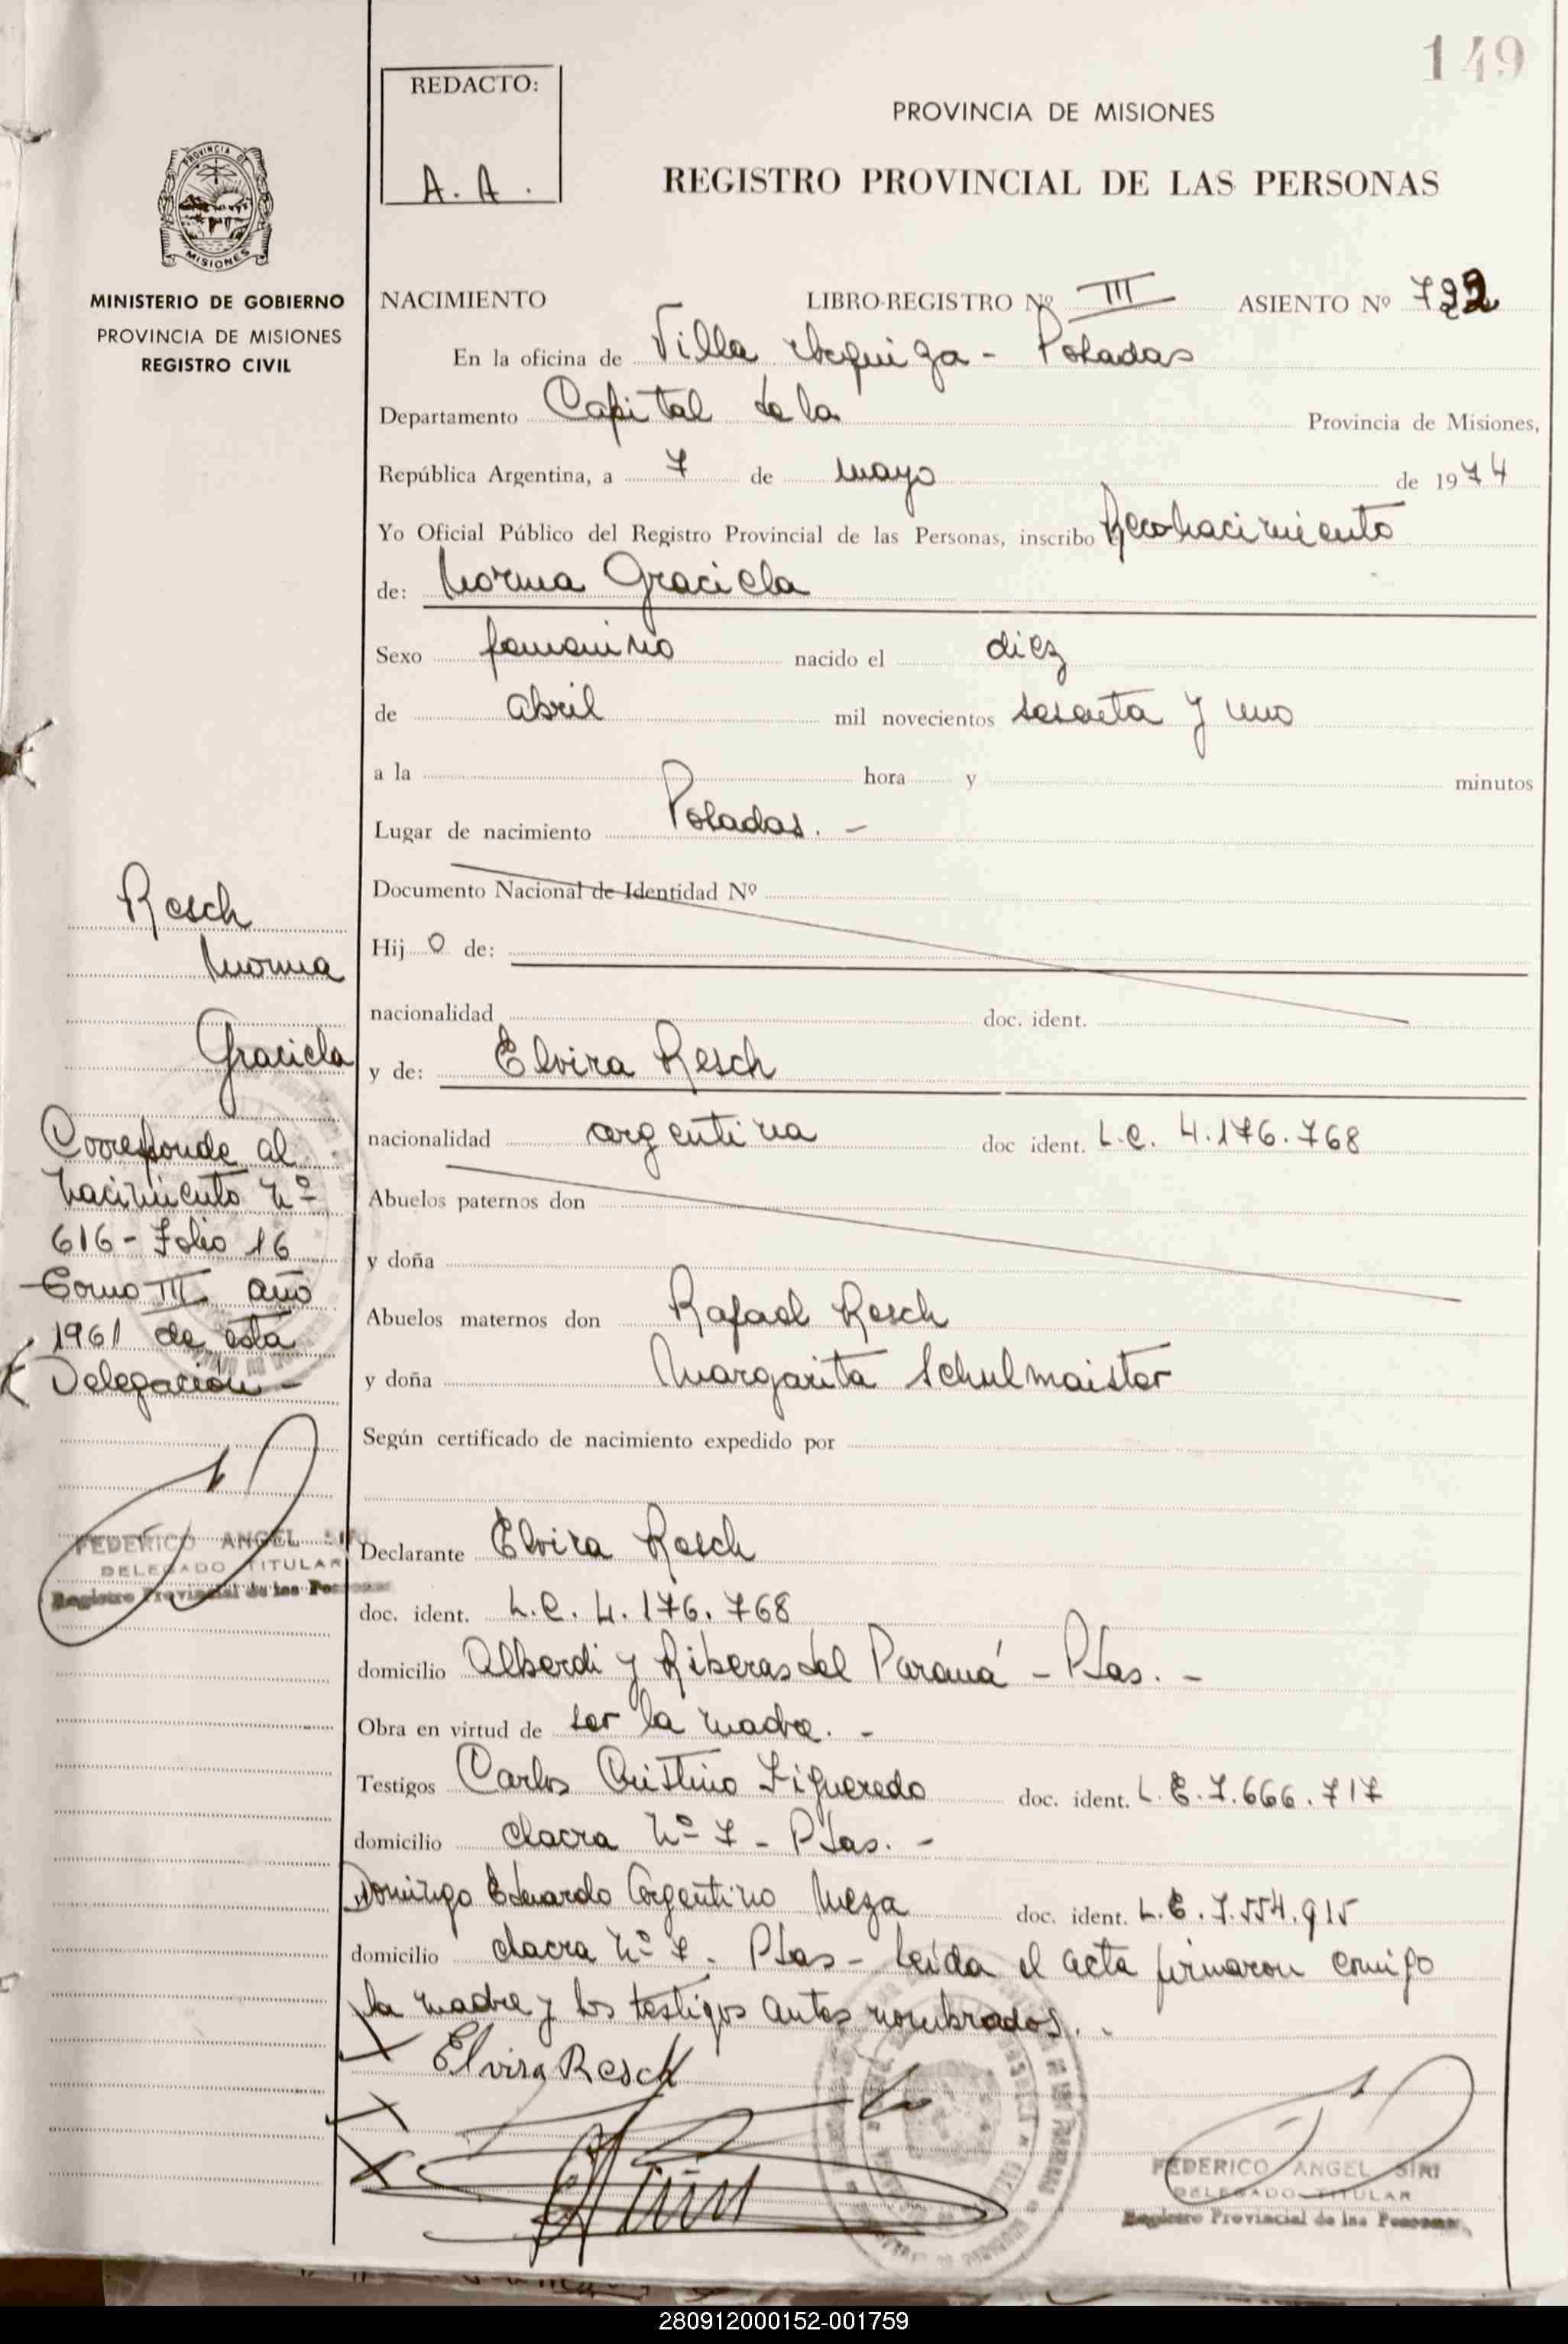 149
REDACTO:
A. A.
PROVINCIA DE MISIONES
REGISTRO PROVINCIAL DE LAS PERSONAS
PROVINCIA DE
MISIONES
MINISTERIO DE GOBIERNO
PROVINCIA DE MISIONES
REGISTRO CIVIL
NACIMIENTO LIBRO-REGISTRO Nº III ASIENTO Nº 722
En la oficina de Villa Urquiza - Posadas
Departamento Capital de la Provincia de Misiones,
República Argentina, a 7 de mayo de 1974
Yo Oficial Público del Registro Provincial de las Personas, inscribo Reconacimiento
de: Norma Graciela
Sexo femenino nacido el diez
de abril mil novecientos sesenta y uno
a la hora y minutos
Lugar de nacimiento Posadas. -
Documento Nacional de Identidad Nº
Hij o de:
nacionalidad doc. ident.
y de: Elvira Resch
nacionalidad argentina doc ident. L.C. 4.176.768
Abuelos paternos don
y doña
Abuelos maternos don Rafael Resch
y doña Margarita Schulmaister
Según certificado de nacimiento expedido por
Declarante Elvira Resch
doc. ident. L.C. 4.176.768
domicilio Alberdi y Riberas del Paraná - Pdas. -
Obra en virtud de ser la madre. -
Testigos Carlos Cristino Figueredo doc. ident. L.E. 7.666.717
domicilio chacra Nº 7 - Pdas. -
Domingo Eduardo Argentino Meza doc. ident. L.E. 7.554.915
domicilio chacra Nº 7 - Pdas - Leída el acta firmaron conmigo
la madre y los testigos antes nombrados.
Elvira Resch
FEDERICO ANGEL SIRI
DELEGADO TITULAR
Registro Provincial de las Personas
Resch
Norma
Graciela
Corresponde al
Nacimiento Nº
616 - Folio 16
Tomo III año
1961 de esta
Delegación -
FEDERICO ANGEL SIRI
DELEGADO TITULAR
Registro Provincial de las Personas
280912000152-001759